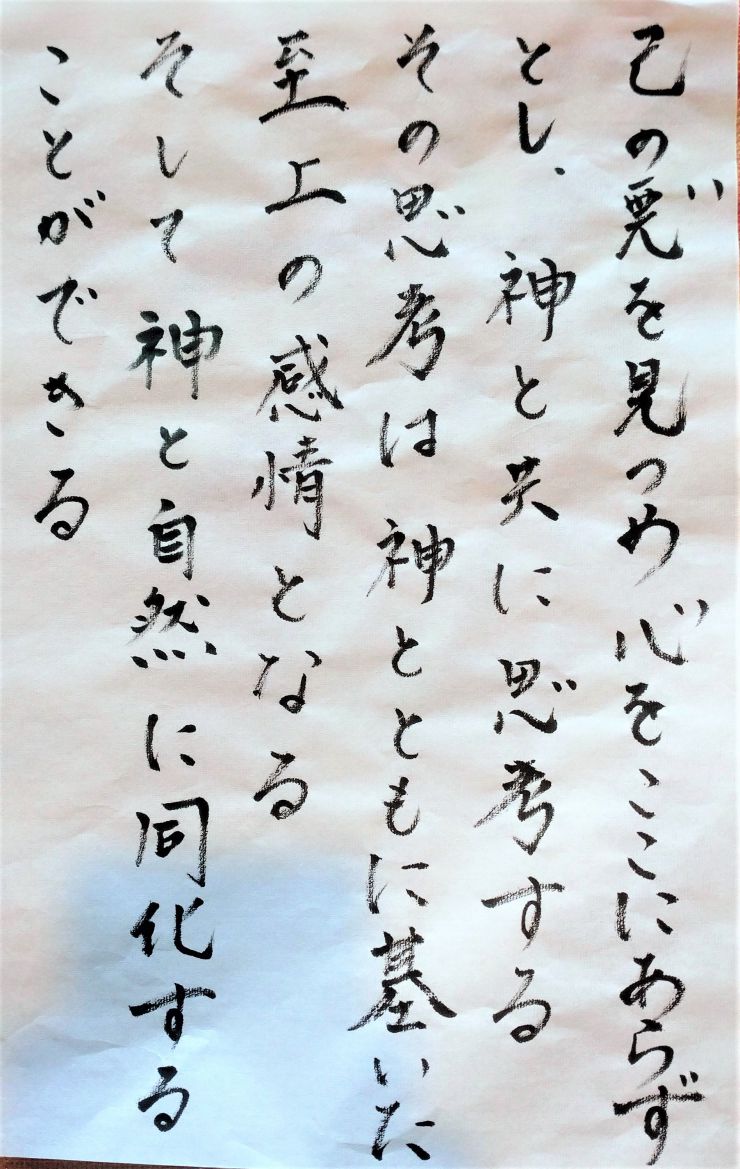 己の悪を見つめ心をここにあらず
とし、神と共に思考する
その思考は神とともに基いた
至上の感情となる
そして神と自然に同化する
ことができる